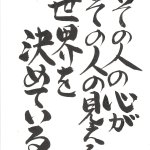 その人の心が
その人の見える
世界を
決めている